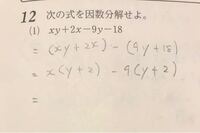 12 次の式を因数分解せよ。
(1) xy+2x-9y-18
= (xy+2x) - (9y+18)
= x(y+2) - 9(y+2)
=